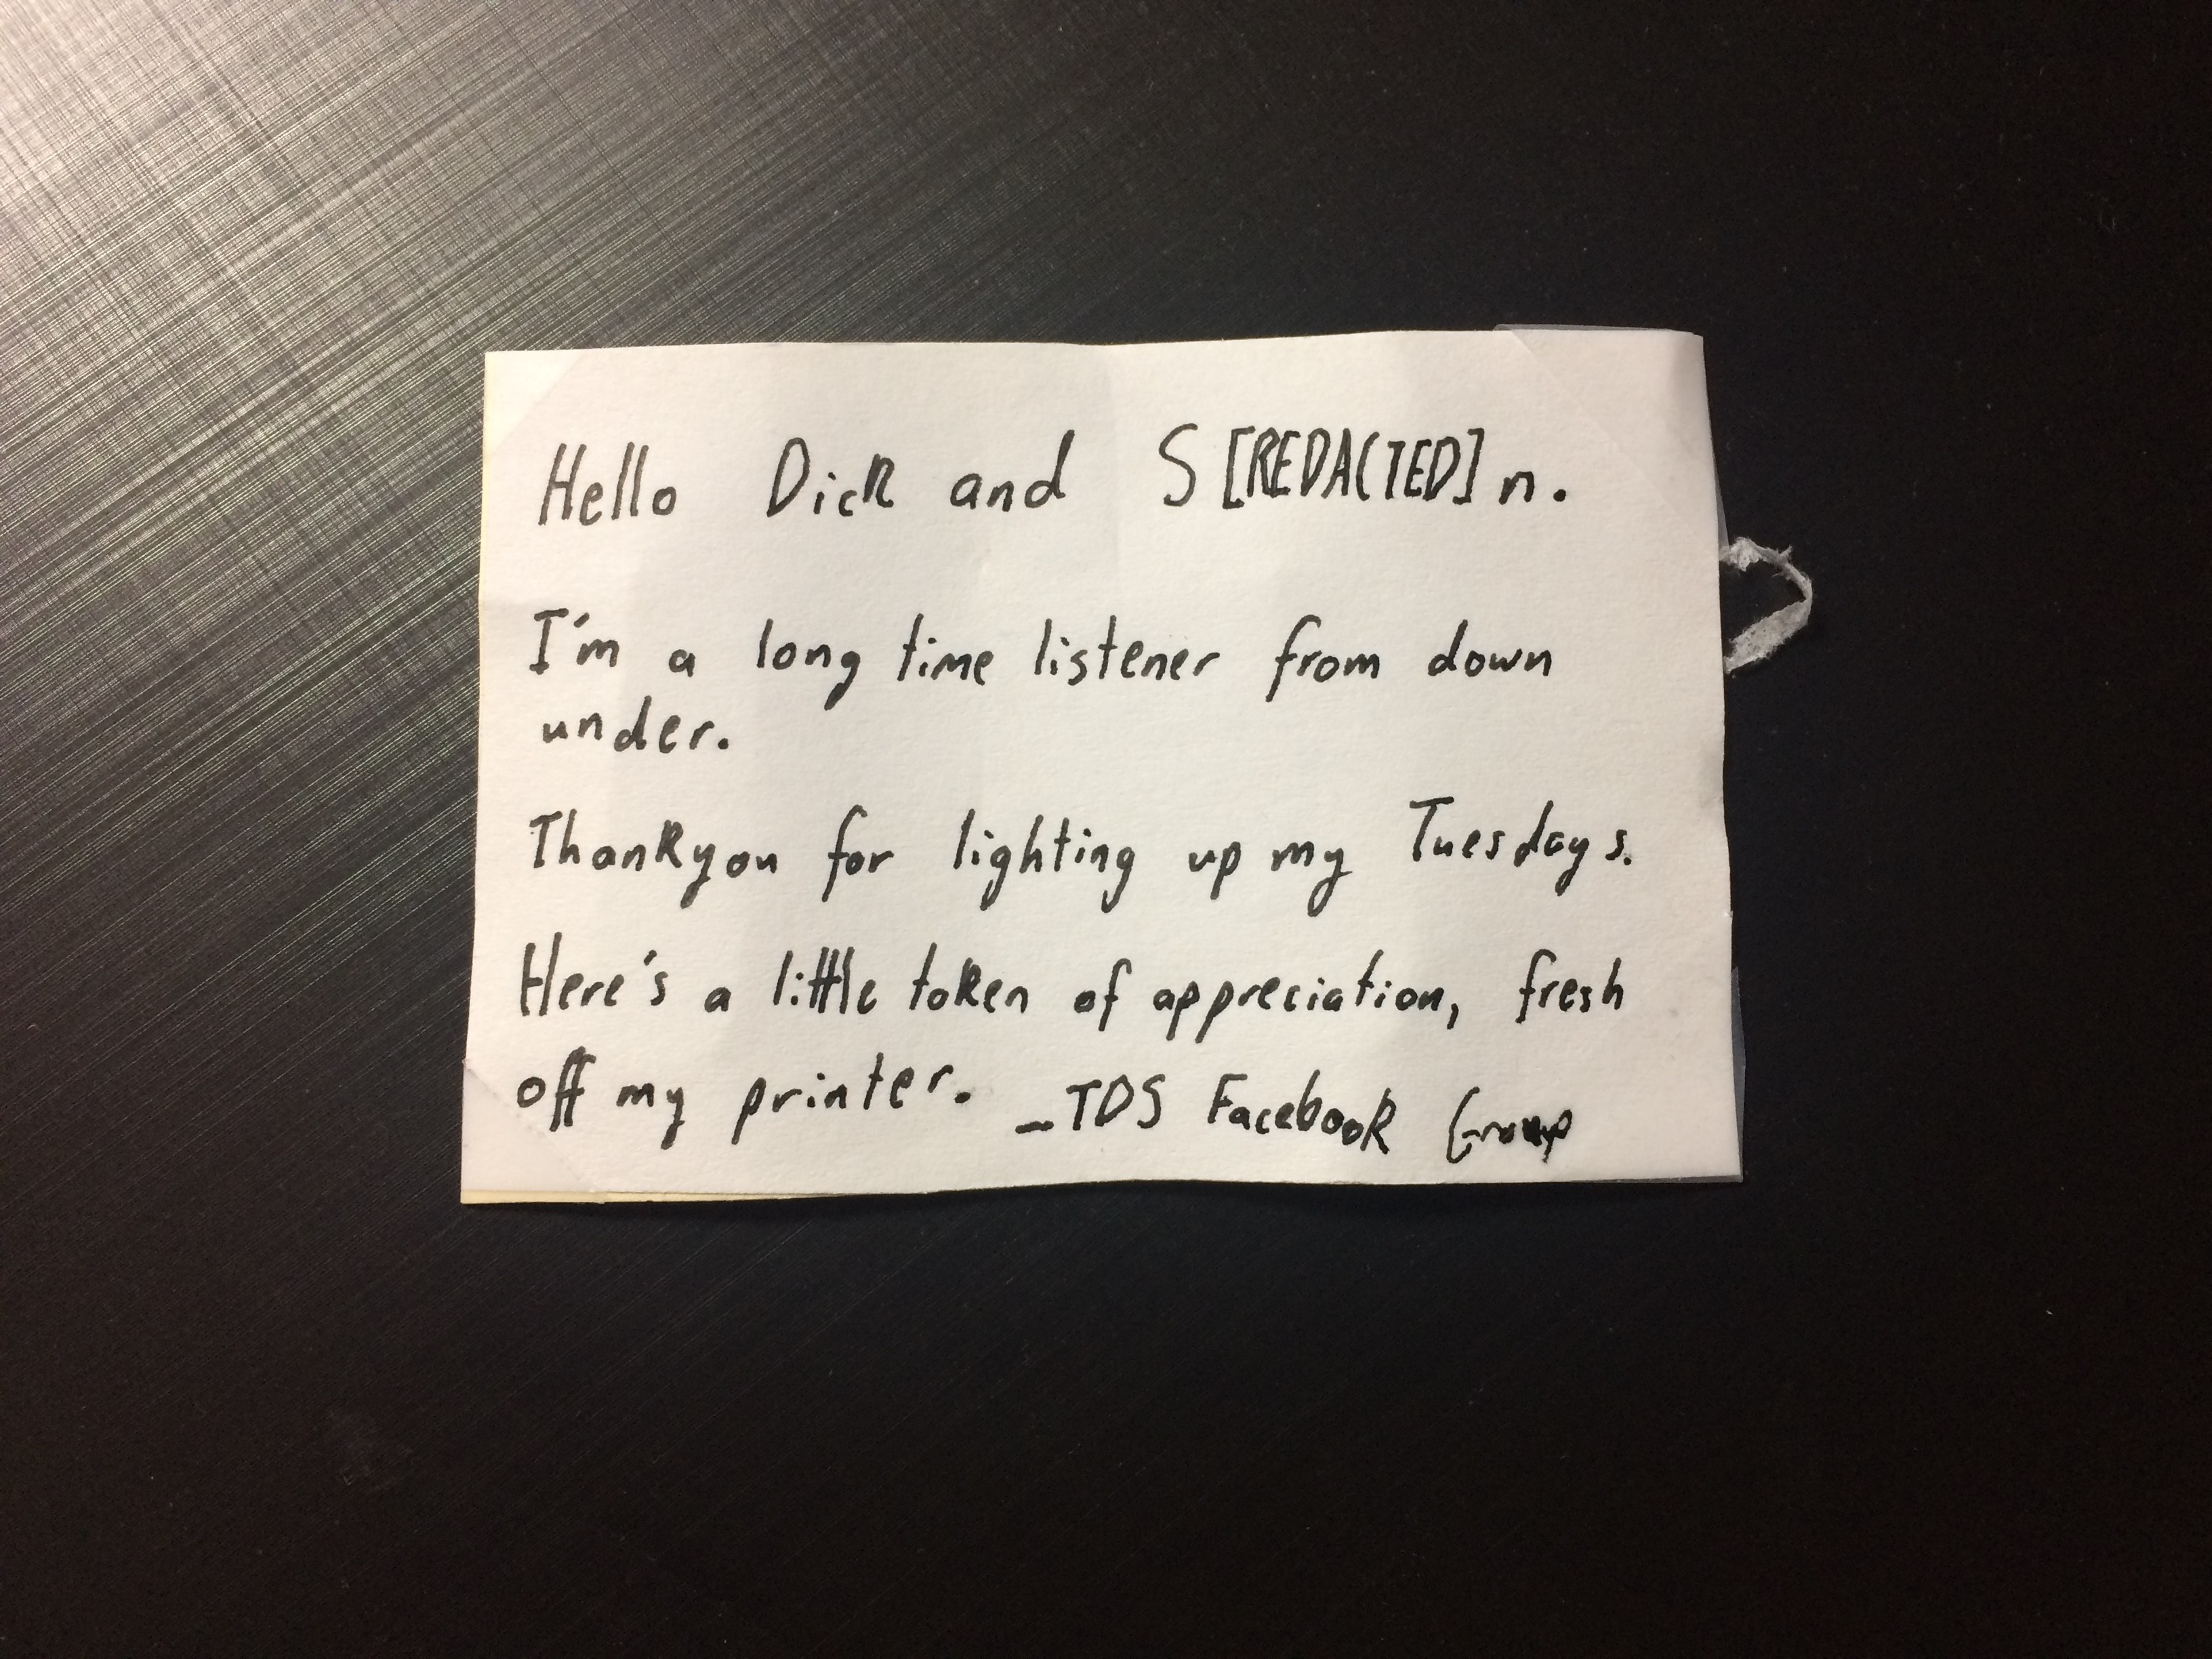 Hello Dick and S[REDACTED]n.
I'm a long time listener from down
under.
Thankyou for lighting up my Tuesdays.
Here's a little token of appreciation, fresh
off my printer. _TDS Facebook Group